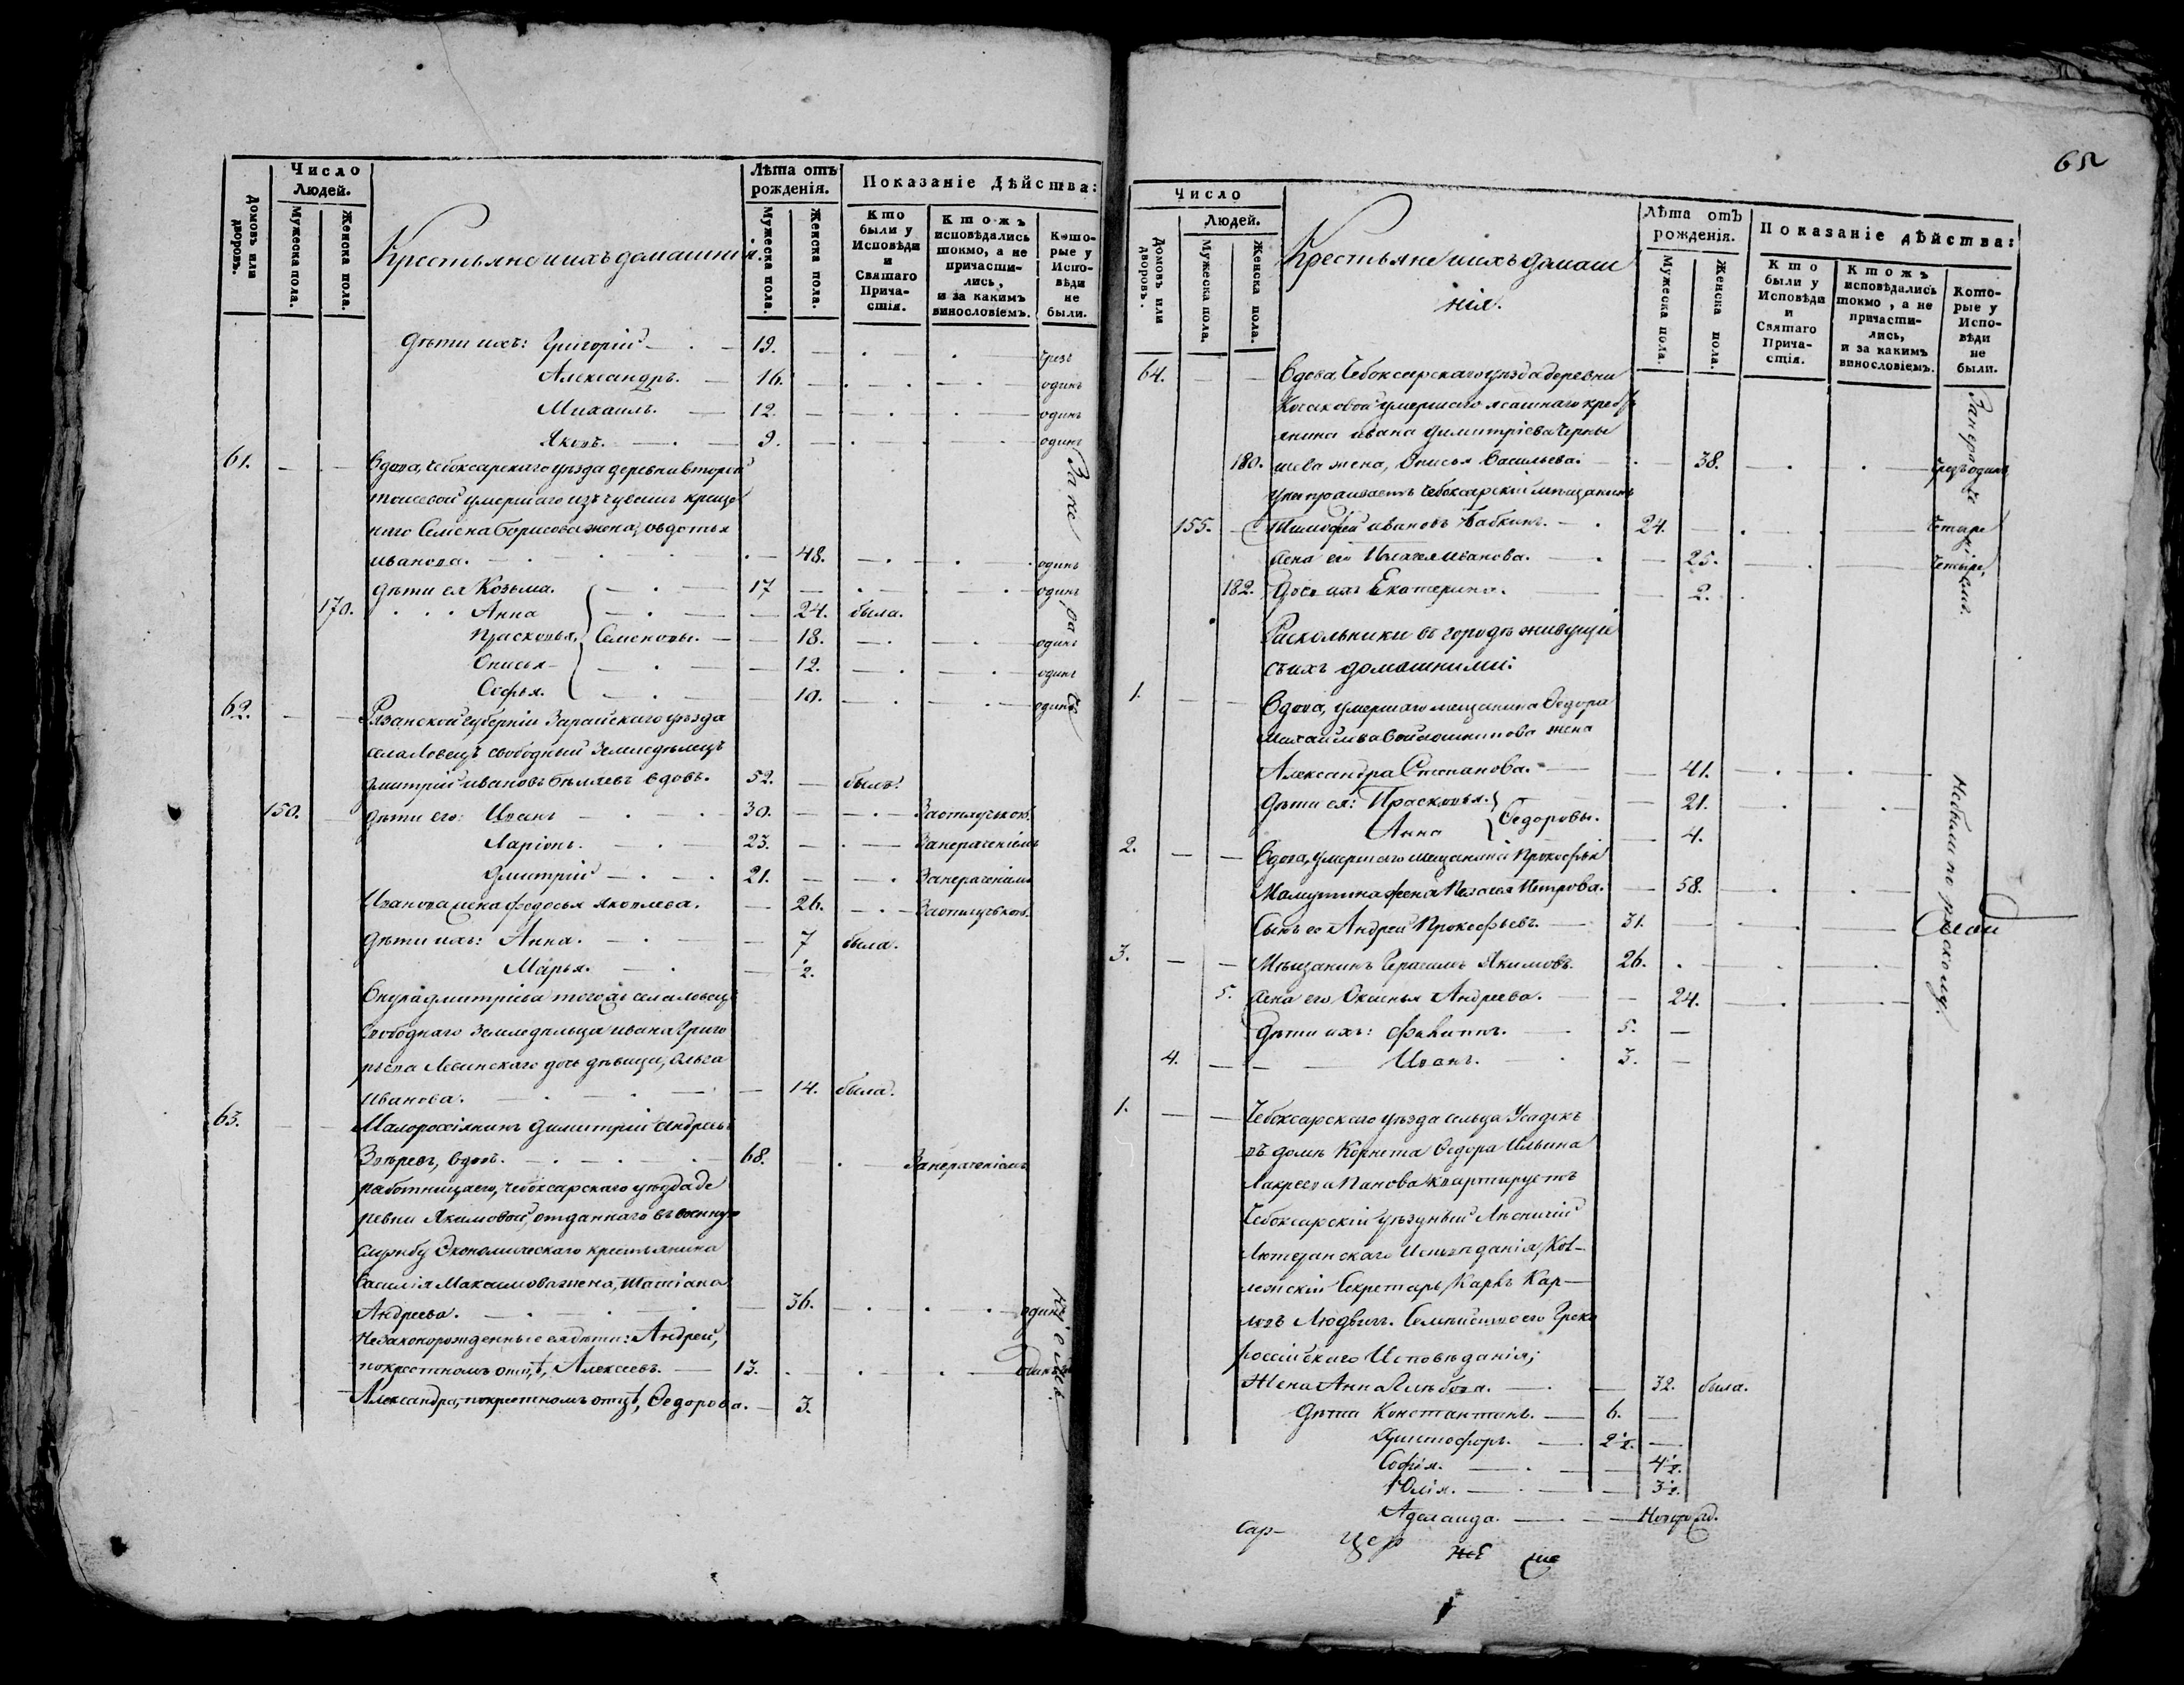 Число
Людей.
Домовъ или дворовъ.
Мужеска пола.
Женска пола.
Крестьяне и ихъ домашнія.
Лѣта отъ рожденія.
Мужеска пола.
Женска пола.
Показаніе Дѣйства:
Кто были у Исповѣди и Святаго Причастія.
Ктожъ исповѣдались токмо, а не причастились, и за какимъ винословіемъ.
Которые у Исповѣди не были.
Дѣти ихъ: Григорій 19. чрезъ
Александръ. 16. одинъ
Михаилъ. 12. одинъ
Яковъ. 9. одинъ
61. Вдова, Чебоксарскаго уѣзда деревни второй
умершаго изъ чувашъ креще
наго Семена Борисова жена, Овдотья
Иванова. 48. одинъ
Дѣти ея Козьма. 17 одинъ
170. Анна 24. была.
Прасковья, Семеновы. 18. одинъ
Онисья 12. одинъ
Софья. 10. одинъ
62. Рязанской губерніи Зарайскаго уѣзда
села Ловецъ свободный Земледѣлецъ
Дмитрій Ивановъ Бѣляевъ вдовъ. 52. былъ.
150. Дѣти его: Иванъ 30. За отлучкою.
Ларіонъ. 23. За нераченіемъ
Дмитрій 21. За нераченіемъ
Иванова жена Федосья Яковлева. 26. За отлучкою.
Дѣти ихъ: Анна. 7 была.
Марья. 1/2.
Внука Дмитріева того же села Ловецъ
Свободнаго Земледѣльца Ивана Григо
рьева Левинскаго дочь дѣвица, Ольга
Иванова. 14. была.
63. Малороссіянинъ Димитрій Андреевъ
Звѣревъ, вдовъ. 68. За нераченіемъ
работница его, Чебоксарскаго уѣзда де
ревни Якимовой, отданнаго въ военную
службу Экономическаго крестьянина
Василія Максимова жена, Татіана
Андреева. 36. одинъ
Незаконорожденные ея дѣти: Андрей,
по крестномъ отцѣ, Алексеевъ. 13. одинъ
Александра, по крестномъ отцѣ, Федорова. 3.
65
Число
Людей.
Домовъ или дворовъ.
Мужеска пола.
Женска пола.
Крестьяне и ихъ домаш
нія.
Лѣта отъ рожденія.
Мужеска пола.
Женска пола.
Показаніе дѣйства:
Кто были у Исповѣди и Святаго Причастія.
Ктожъ исповѣдались токмо, а не причастились, и за какимъ винословіемъ.
Которые у Исповѣди не были.
64. Вдова, Чебоксарскаго уѣзда деревни
умершаго ясашнаго кресть
янина Ивана Димитріева Черны
180. шева жена, Онисья Васильева. 38. чрезъ одинъ
у ней проживаетъ Чебоксарскій мѣщанинъ
155. Тимофей Ивановъ Бабкинъ. 24. четыре
Жена его Пелагея Иванова. 25. четыре,
182. Дочь ихъ Екатерина. 2.
Раскольники въ городѣ живущіе
съ ихъ домашними:
1. Вдова, умершаго мещанина Федора
Михайлова жена
Александра Степанова. 41.
Дѣти ея: Прасковья. Федоровы. 21.
Анна 4.
Не были по расколу.
2. Вдова, умершаго мещанина Прокофья
жена Пелагея Петрова. 58.
Сынъ ее Андрей Прокофьевъ. 31.
3. Мѣщанинъ Герасимъ Якимовъ. 26.
5. Жена его Оксинья Андреева. 24.
Дѣти ихъ: 5.
4. Иванъ. 3.
1. Чебоксарскаго уѣзда сельца Усадокъ
въ домѣ Корнета Федора Ильина
Панова квартируетъ
Чебоксарскій уѣздный Лѣсничій
Лютеранскаго Исповѣданія, Кол-
лежскій Секретарь, Карлъ Кар-
ловъ Людвигъ. Семейство его Греко
россійскаго Исповѣданія;
Жена Анна Глѣбова. 32. была.
Дѣти Константинъ. 6.
Христофоръ. 2 1/2.
Софія. 4 1/2.
Юлія. 3 1/2.
Аделаида.